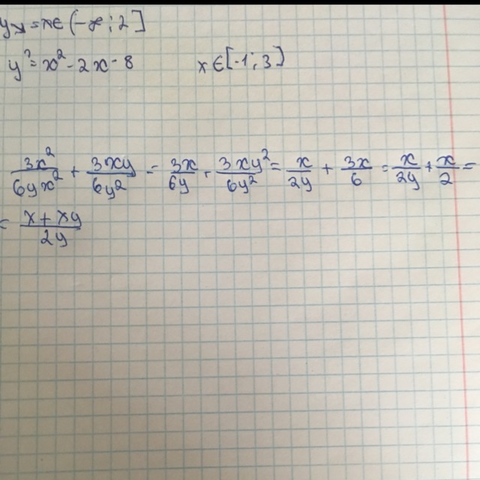 y↘ = x∈(-∞; 2]
y² = x² - 2x - 8 x∈[-1; 3]
3x²/6yx² + 3xy/6y² = 3x/6y + 3xy²/6y² = x/2y + 3x/6 = x/2y + x/2 =
= x + xy/2y